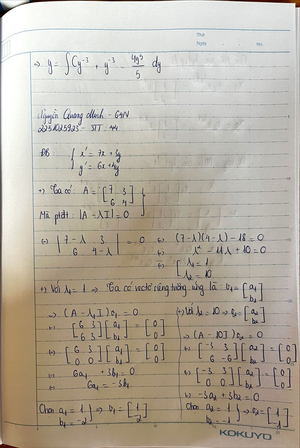 ⇒ y = ∫ Cy⁻³ + y⁻³ · 4y⁵/5 dy
Quang
ĐB { x' = 7x + 3y
y' = 6x + 4y
+) Ta có A = [7 3; 6 4]
|A - λI| = 0
(⇒) |7-λ 3; 6 4-λ| = 0 (⇒) (7-λ)(4-λ) - 18 = 0
(⇒) λ² - 11λ + 10 = 0
(⇒) [λ₁ = 1
λ₂ = 10
+) Với λ₁ = 1 ⇒ Ta có vectơ riêng tương ứng là v₁ = [a₁; b₁]
⇒ (A - λ₁I)v₁ = 0
(⇒) [6 3; 6 3][a₁; b₁] = [0; 0]
(⇒) [6 3; 0 0][a₁; b₁] = [0; 0]
(⇒) 6a₁ + 3b₁ = 0
(⇒) 6a₁ = -3b₁
Chọn a₁ = 1
b₁ = -2
+) Với λ₂ = 10 ⇒ v₂ = [a₂; b₂]
⇒ (A - 10I)v₂ = 0
(⇒) [-3 3; 6 -6][a₂; b₂] = [0; 0]
(⇒) [-3 3; 0 0][a₂; b₂] = [0; 0]
(⇒) -3a₂ + 3b₂ = 0
Chọn a₂ = 1
KOKUYO